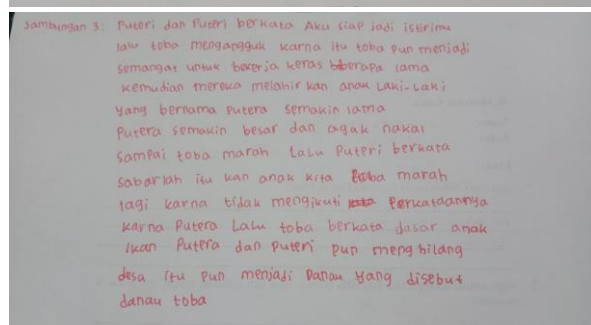 Sambungan 3: Puteri dan Puteri berkata Aku siap jadi istirimu
lalu toba mengangguk karna itu toba pun menjadi
semangat untuk bekerja keras beberapa lama
kemudian mereka melahir kan anak Laki-Laki
yang bernama Putera semakin lama
Putera semakin besar dan agak nakal
Sampai toba marah Lalu Puteri berkata
sabarlah itu kan anak kita toba marah
lagi karna tidak mengikuti Perkataannya
karna Putera Lalu toba berkata dasar anak
ikan Putera dan Puteri pun meng hilang
desa itu pun menjadi Danau yang disebut
danau toba